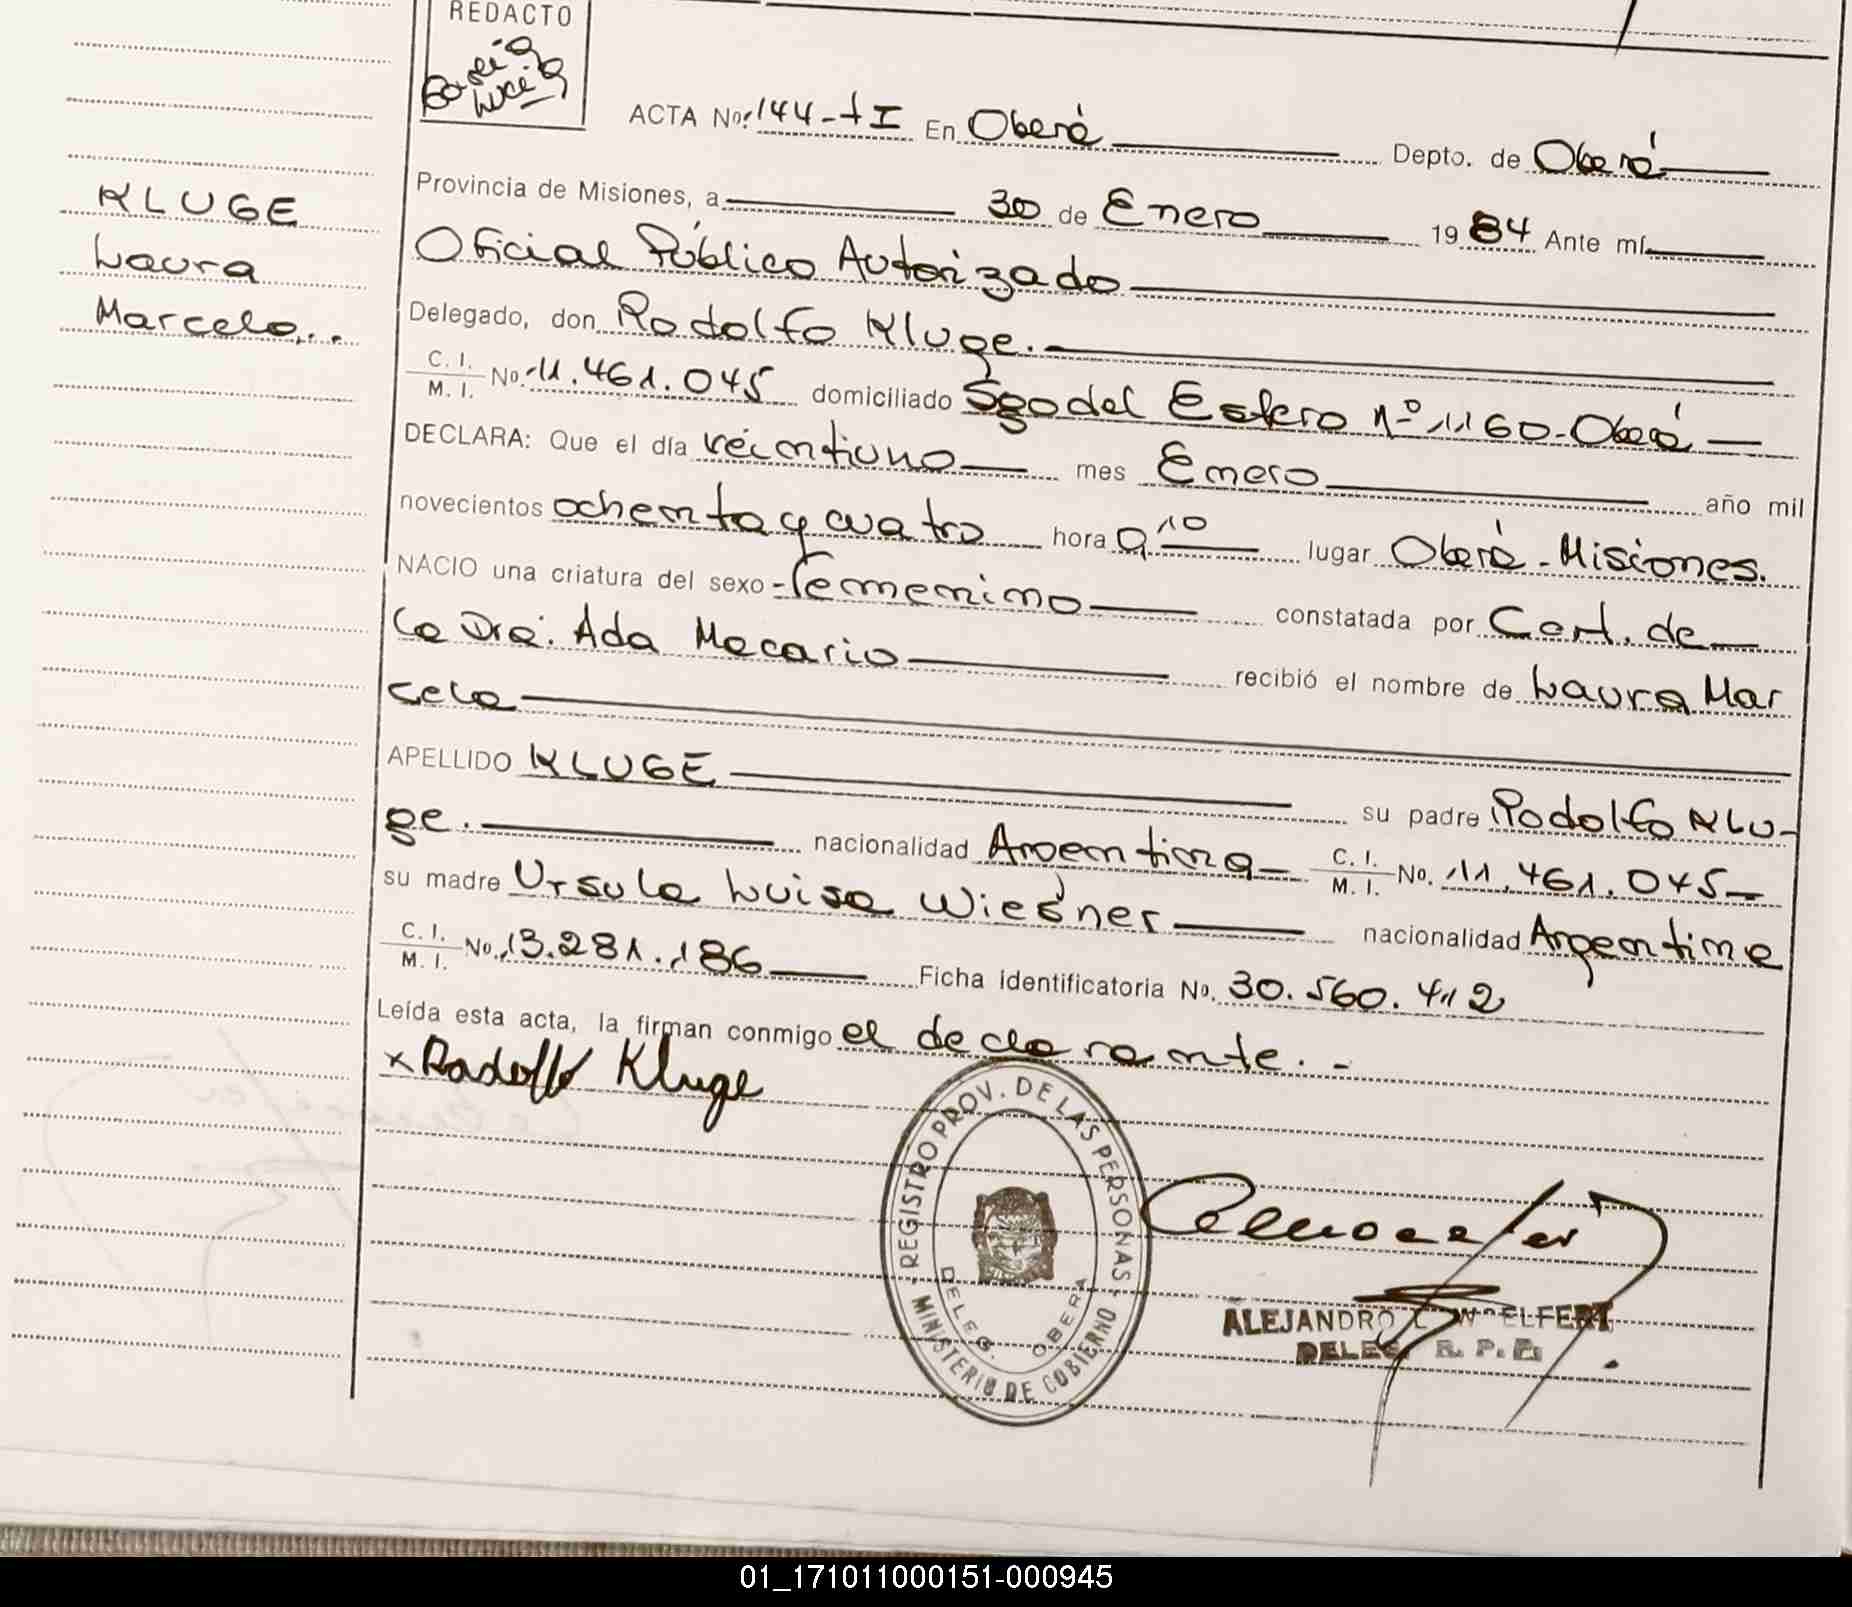 REDACTO
García
Lucía
ACTA No. 144-tI En Oberá Depto. de Oberá
Provincia de Misiones, a 30 de Enero 1984 Ante mí
Oficial Público Autorizado
Delegado, don Rodolfo Kluge.
C. I. / M. I. No. 11.461.045 domiciliado Sgo del Estero nº 1160-Oberá
DECLARA: Que el día veintiuno mes Enero año mil
novecientos ochenta y cuatro hora 9,10 lugar Oberá-Misiones.
NACIO una criatura del sexo femenino constatada por Cert. de
la Dra. Ada Macario recibió el nombre de Laura Mar
cela
APELLIDO KLUGE su padre Rodolfo Klu-
ge. nacionalidad Argentina C. I. / M. I. No. 11.461.045
su madre Ursula Luisa Wiesner nacionalidad Argentina
C. I. / M. I. No. 13.281.186 Ficha identificatoria No. 30.560.412
Leída esta acta, la firman conmigo el declarante.-
x Rodolfo Kluge
KLUGE
Laura
Marcela...
REGISTRO PROV. DE LAS PERSONAS
MINISTERIO DE GOBIERNO
DELEG. OBERA
ALEJANDRO
DELEG. R. P. P.
01_171011000151-000945